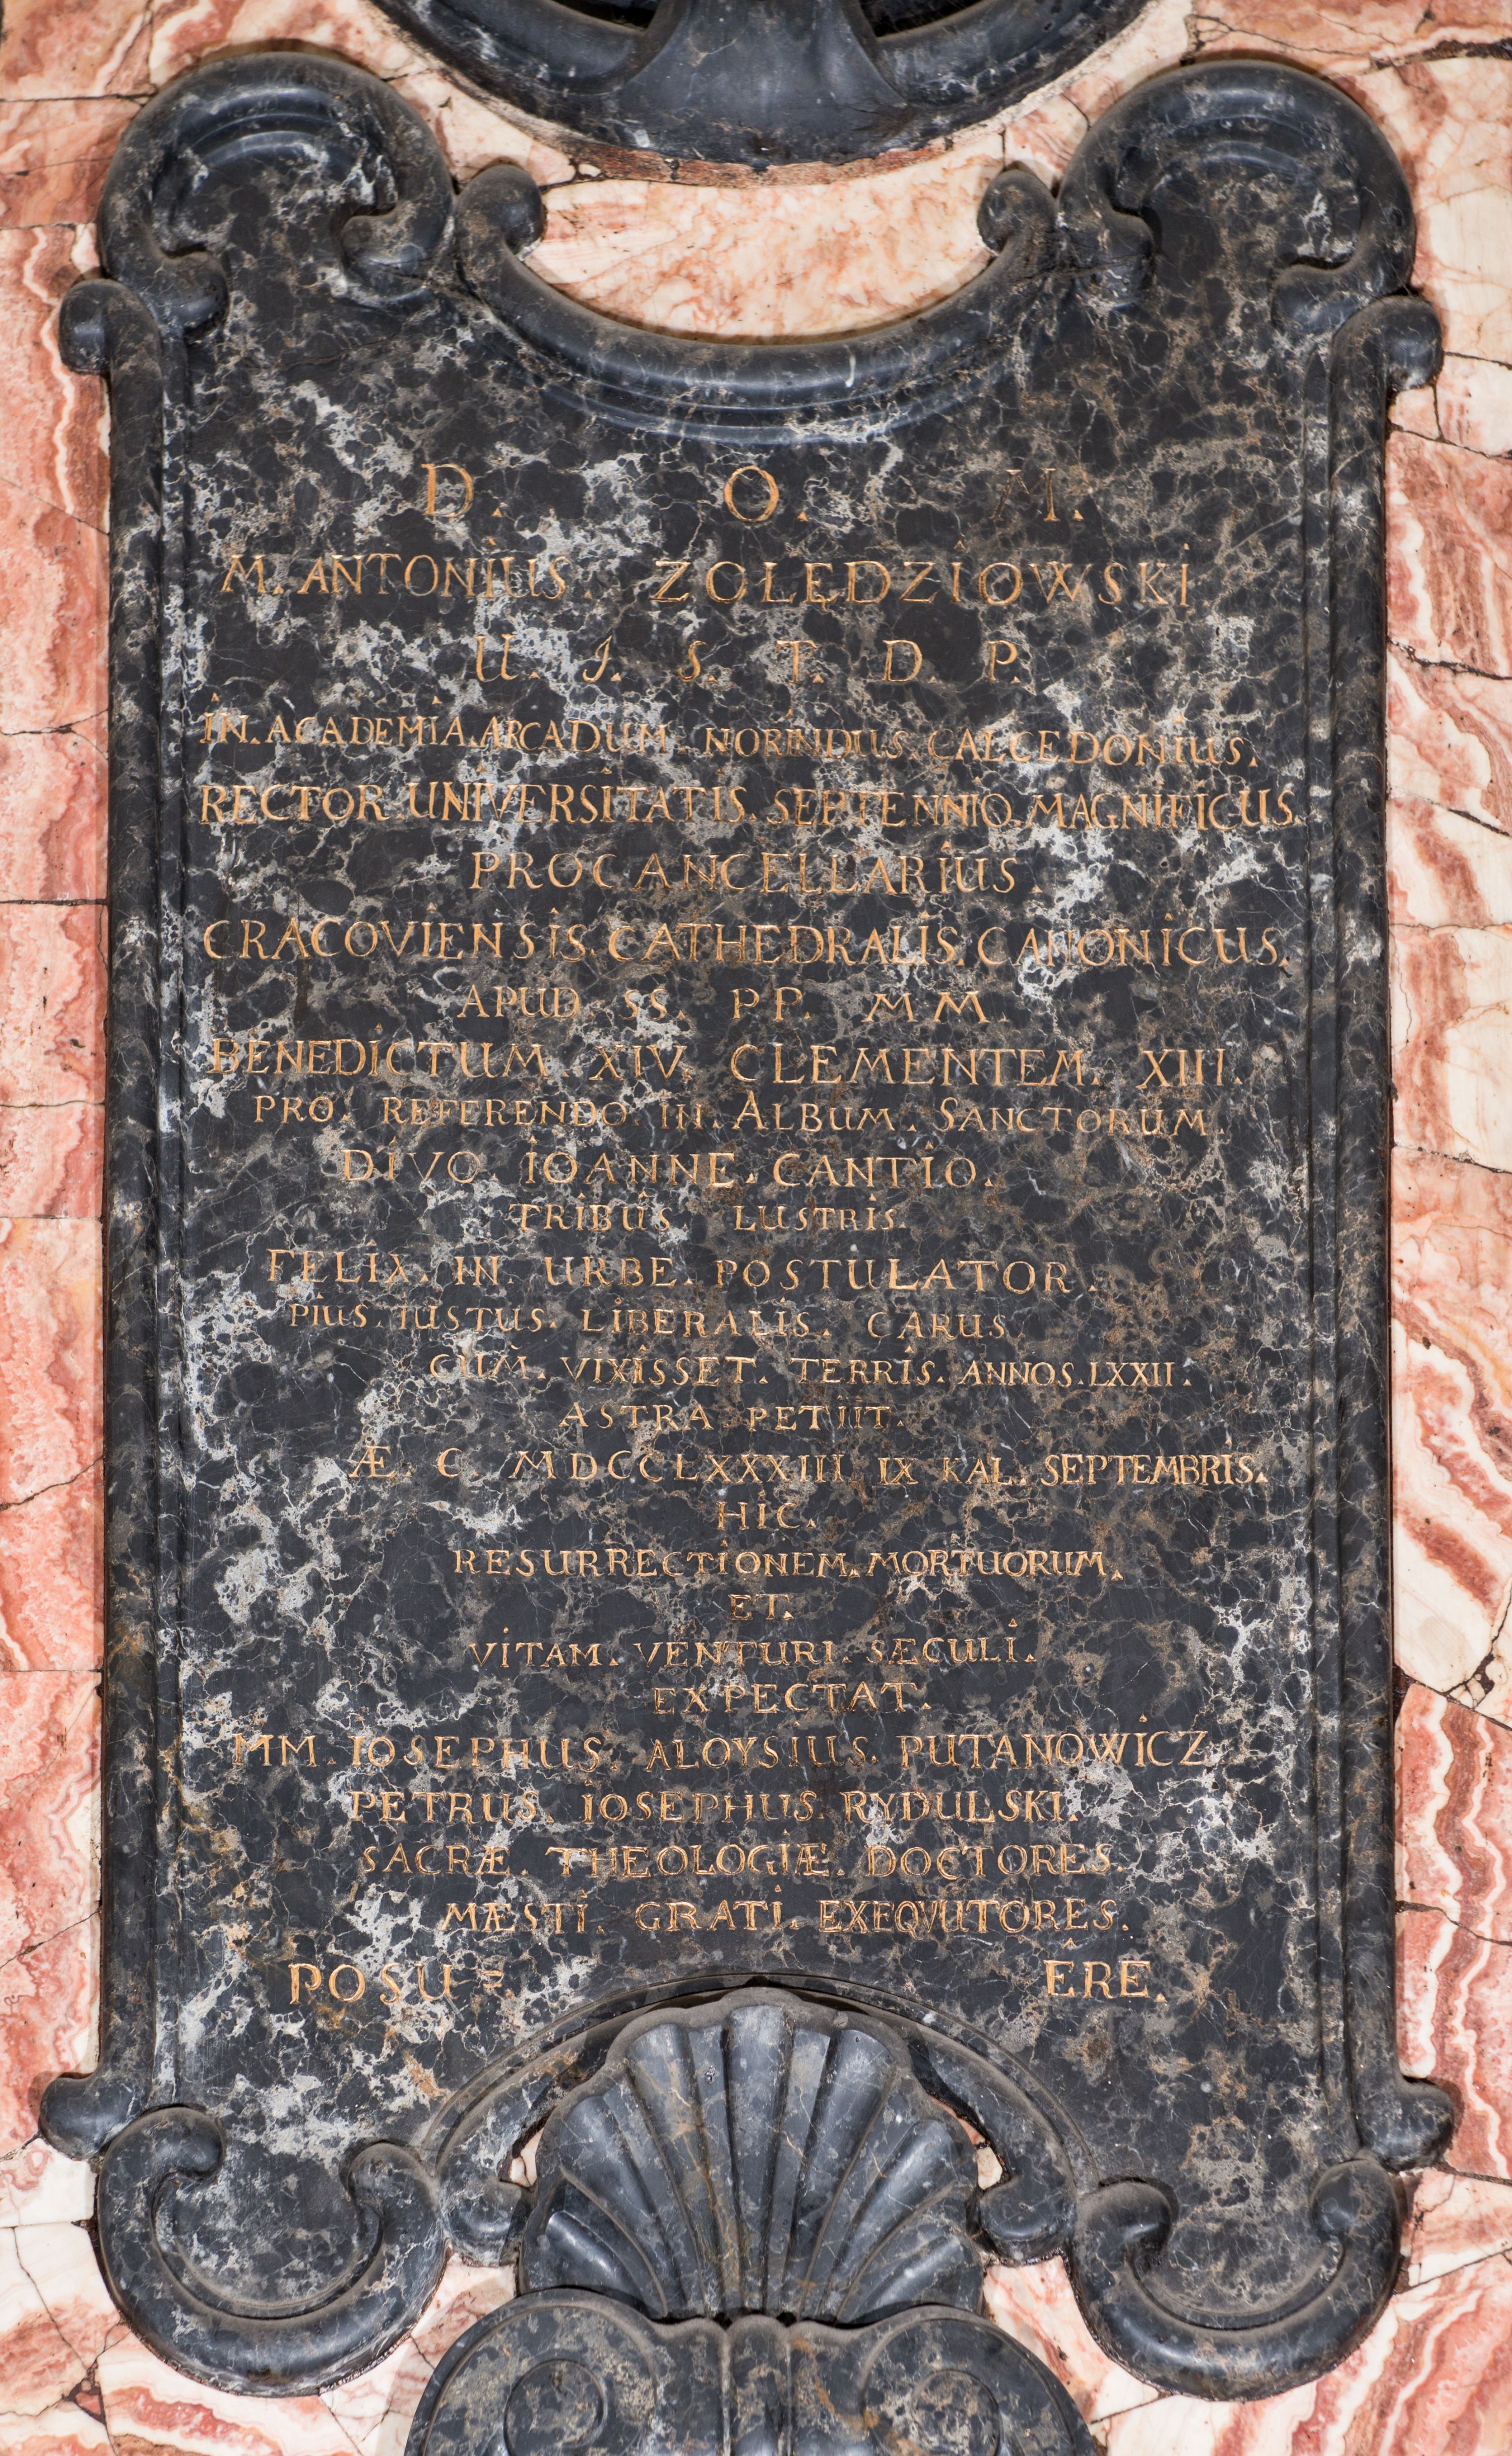 D. O. M.
M. ANTONIUS. ZOŁĘDZIOWSKI
U. I. S. T. D. P.
IN. ACADEMIA. ARCADUM. NORINDUS. CALCEDONIUS.
RECTOR. UNIVERSITATIS. SEPTENNIO. MAGNIFICUS.
PROCANCELLARIUS.
CRACOVIENSIS. CATHEDRALIS. CANONICUS.
APUD. SS. PP. MM.
BENEDICTUM. XIV. CLEMENTEM. XIII.
PRO. REFERENDO. IN. ALBUM. SANCTORUM.
DIVO IOANNE. CANTIO.
TRIBUS. LUSTRIS.
FELIX. IN. URBE. POSTULATOR.
PIUS. IUSTUS. LIBERALIS. CARUS.
CUM. VIXISSET. TERRIS. ANNOS. LXXII.
ASTRA PETIIT.
Æ. C. MDCCLXXXIII IX KAL. SEPTEMBRIS.
HIC.
RESURRECTIONEM. MORTUORUM.
ET.
VITAM. VENTURI. SÆCULI.
EXPECTAT.
MM. IOSEPHUS. ALOYSIUS. PUTANOWICZ
PETRUS. IOSEPHUS. RYDULSKI.
SACRÆ. THEOLOGIÆ. DOCTORES.
MÆSTI. GRATI. EXEQVUTORES.
POSU= ERE.